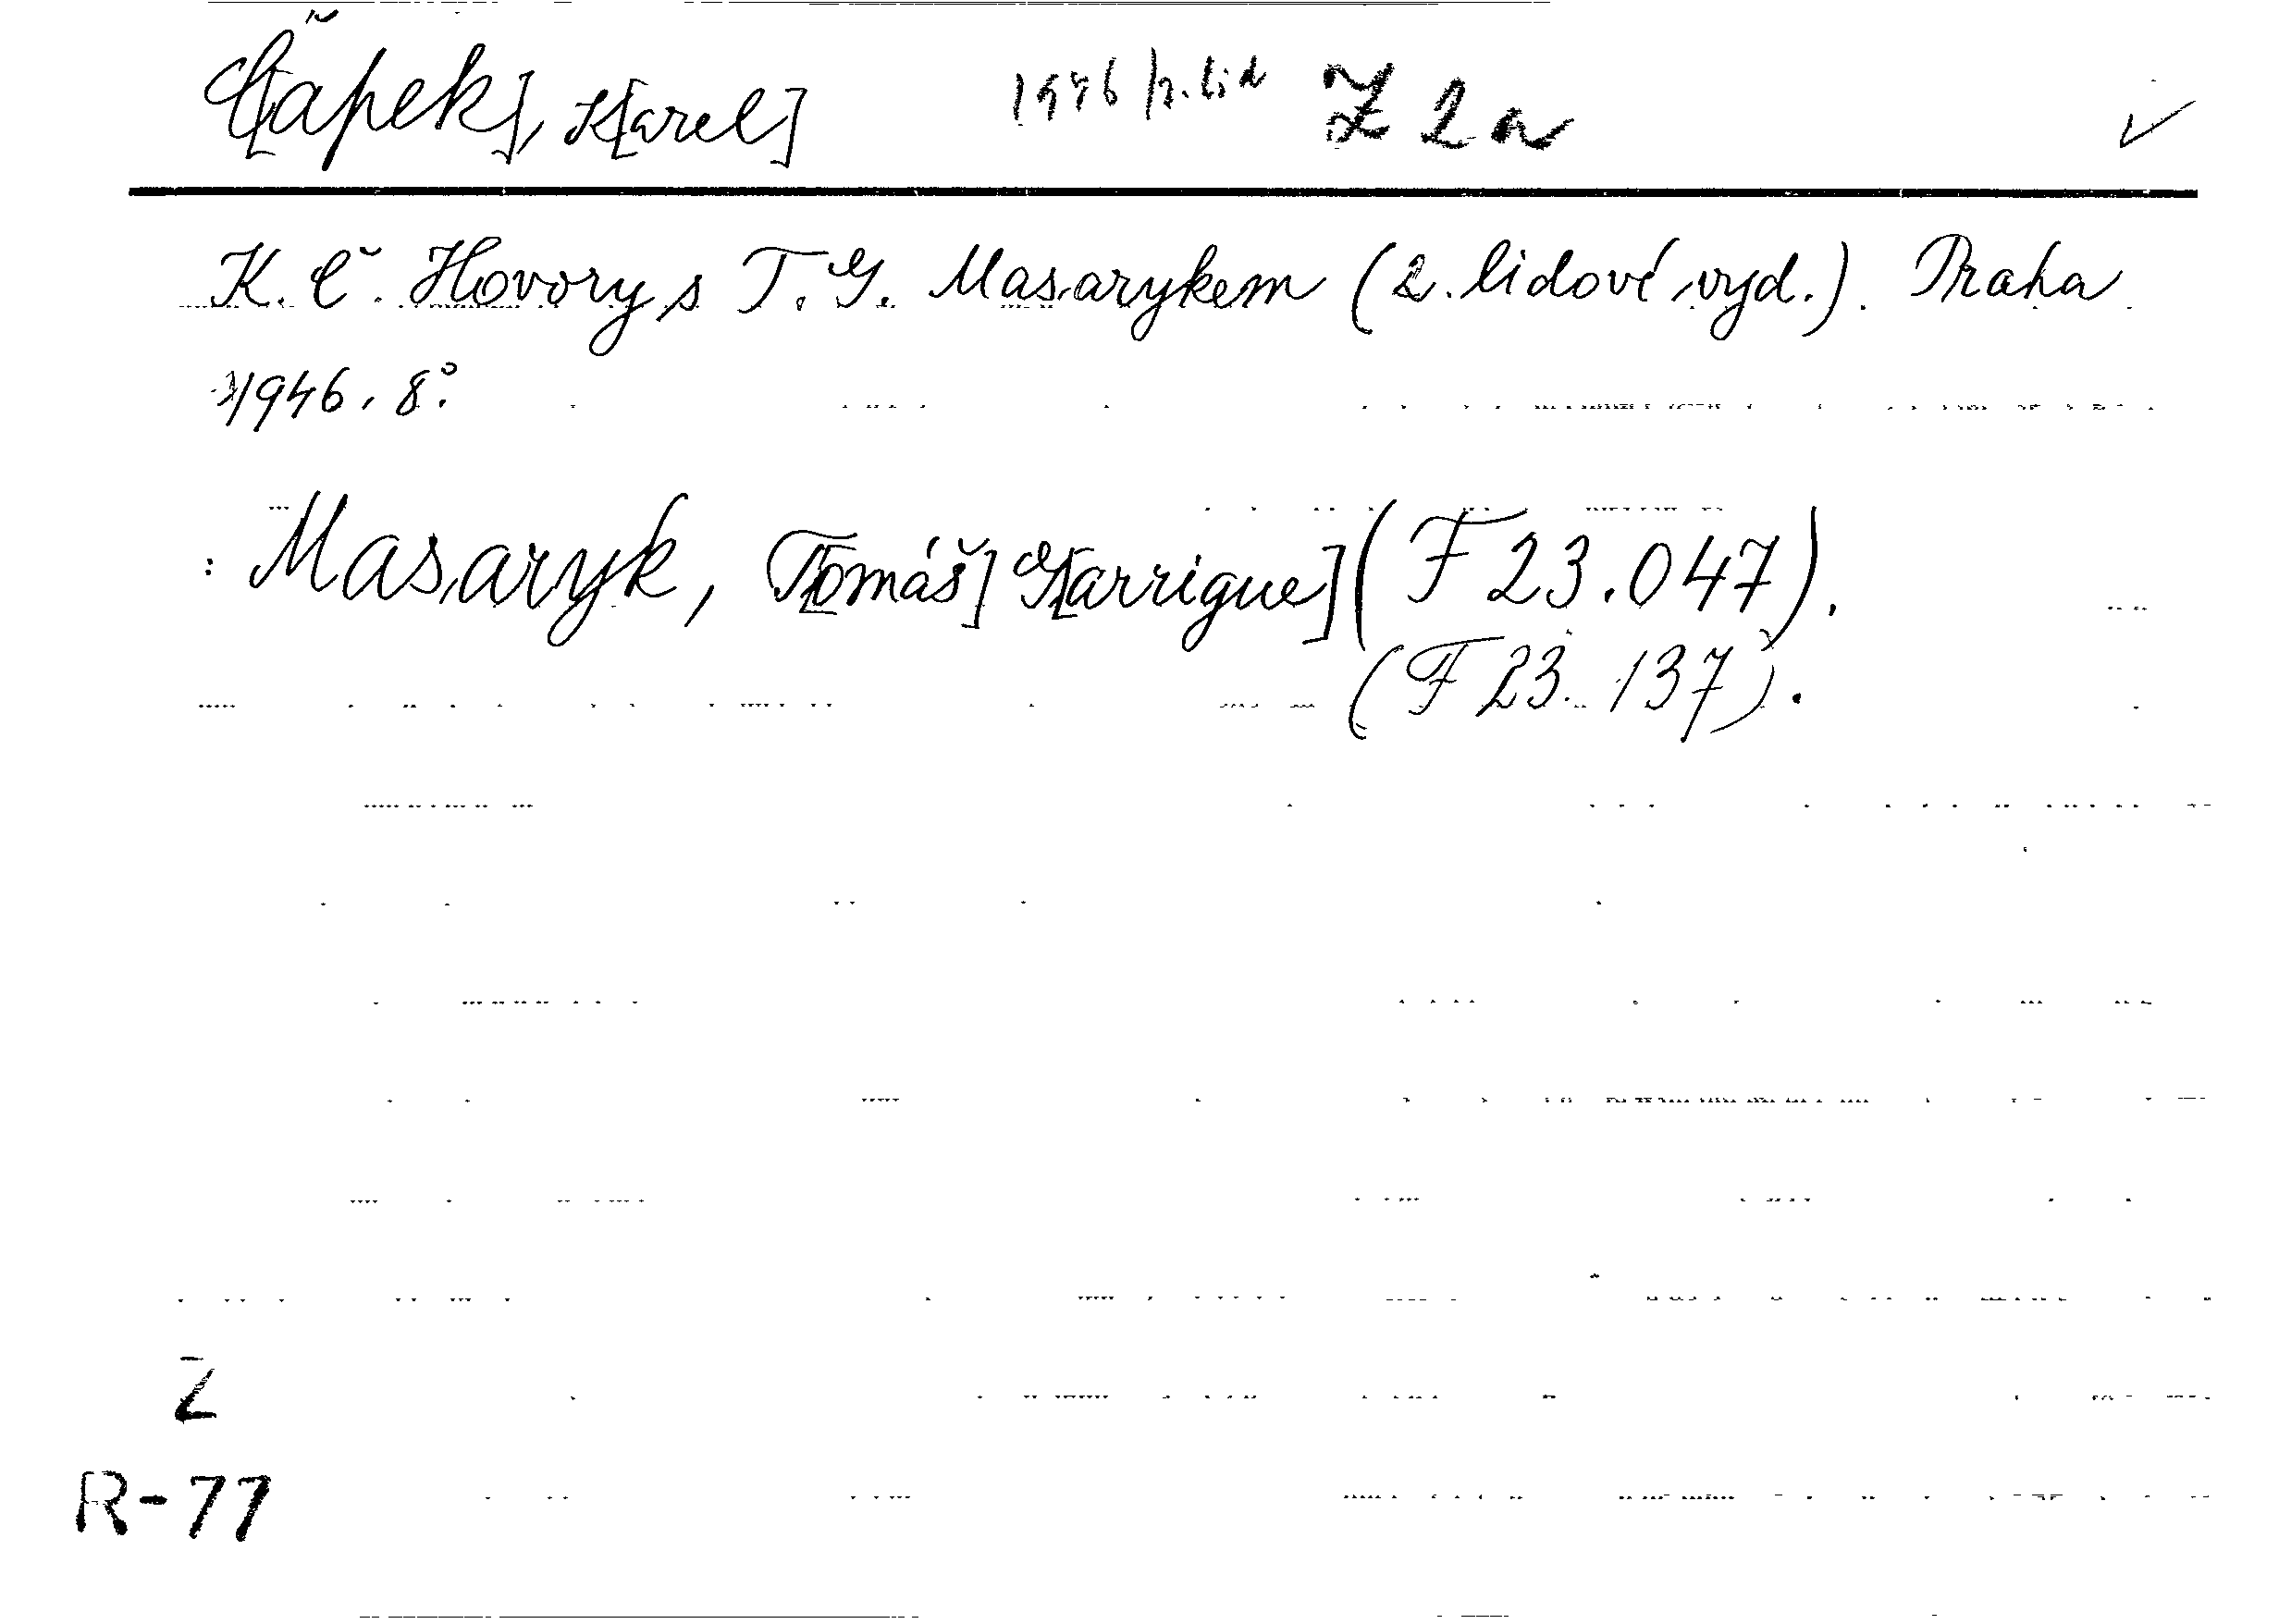 Č[apek], K[arel] 1946/2. lid Z 2a ✓
K. Č. Hovory s T. G. Masarykem (2. lidové vyd.). Praha
1946. 8°.
: Masaryk, T[omáš] G[arrigue] (F 23.047).
(F 23.137).
Z
R-77